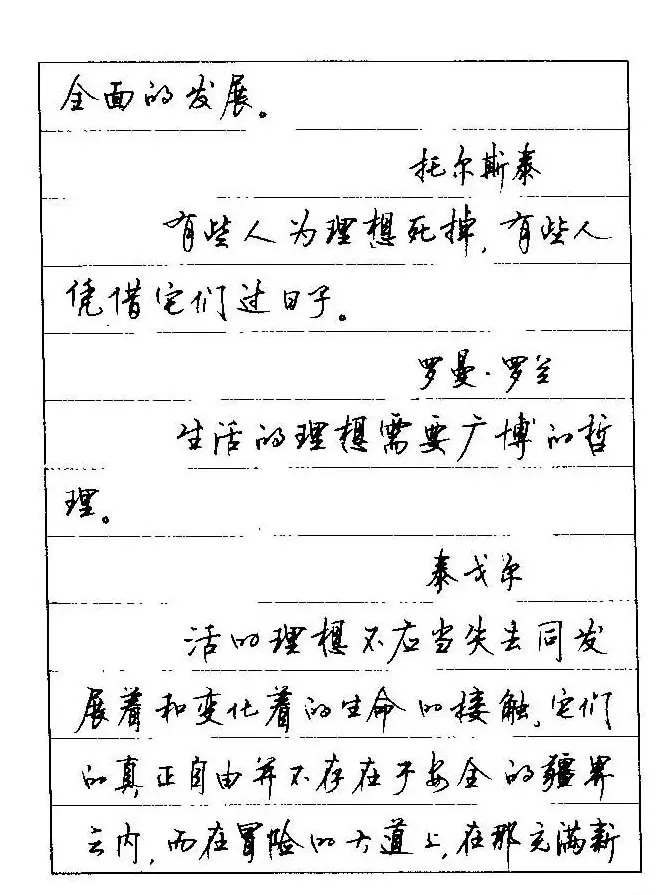 全面的发展。
托尔斯泰
有些人为理想死掉，有些人
凭借它们过日子。
罗曼·罗兰
生活的理想需要广博的哲
理。
泰戈尔
活的理想不应当失去同发
展着和变化着的生命的接触，它们
的真正自由并不存在于安全的疆界
之内，而在冒险的大道上，在那充满新